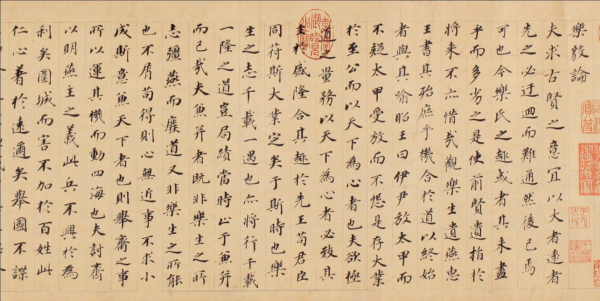 樂毅論
夫求古賢之意宜以大者遠者
先之必迂迴而難通然後已焉
可也今樂氏之趣或者其未盡
乎而多劣之是使前賢遺指於
將来不亦惜哉觀樂生遺燕惠
王書其殆庶乎機合於道以終始
者與其喻昭王曰伊尹放太甲而
不疑太甲受放而不怨是存大業
於至公而以天下為心者也夫欲極
道之量務以天下為心者必致其
主於盛隆合其趣於先王苟君臣
同符斯大業定矣于斯時也樂
生之志千載一遇也亦將行千載
一隆之道豈局蹟當時止于兼并
而已哉夫兼并者既非樂生之所
志彊燕而廢道又非樂生之所能
也不屑苟得則心無近事不求小
成斯意兼天下者也則舉齊之事
所以運其機而動四海也夫討齊
以明燕主之義此兵不興於為
利矣圍城而害不加於百姓此
仁心著於遠邇矣舉國不謀